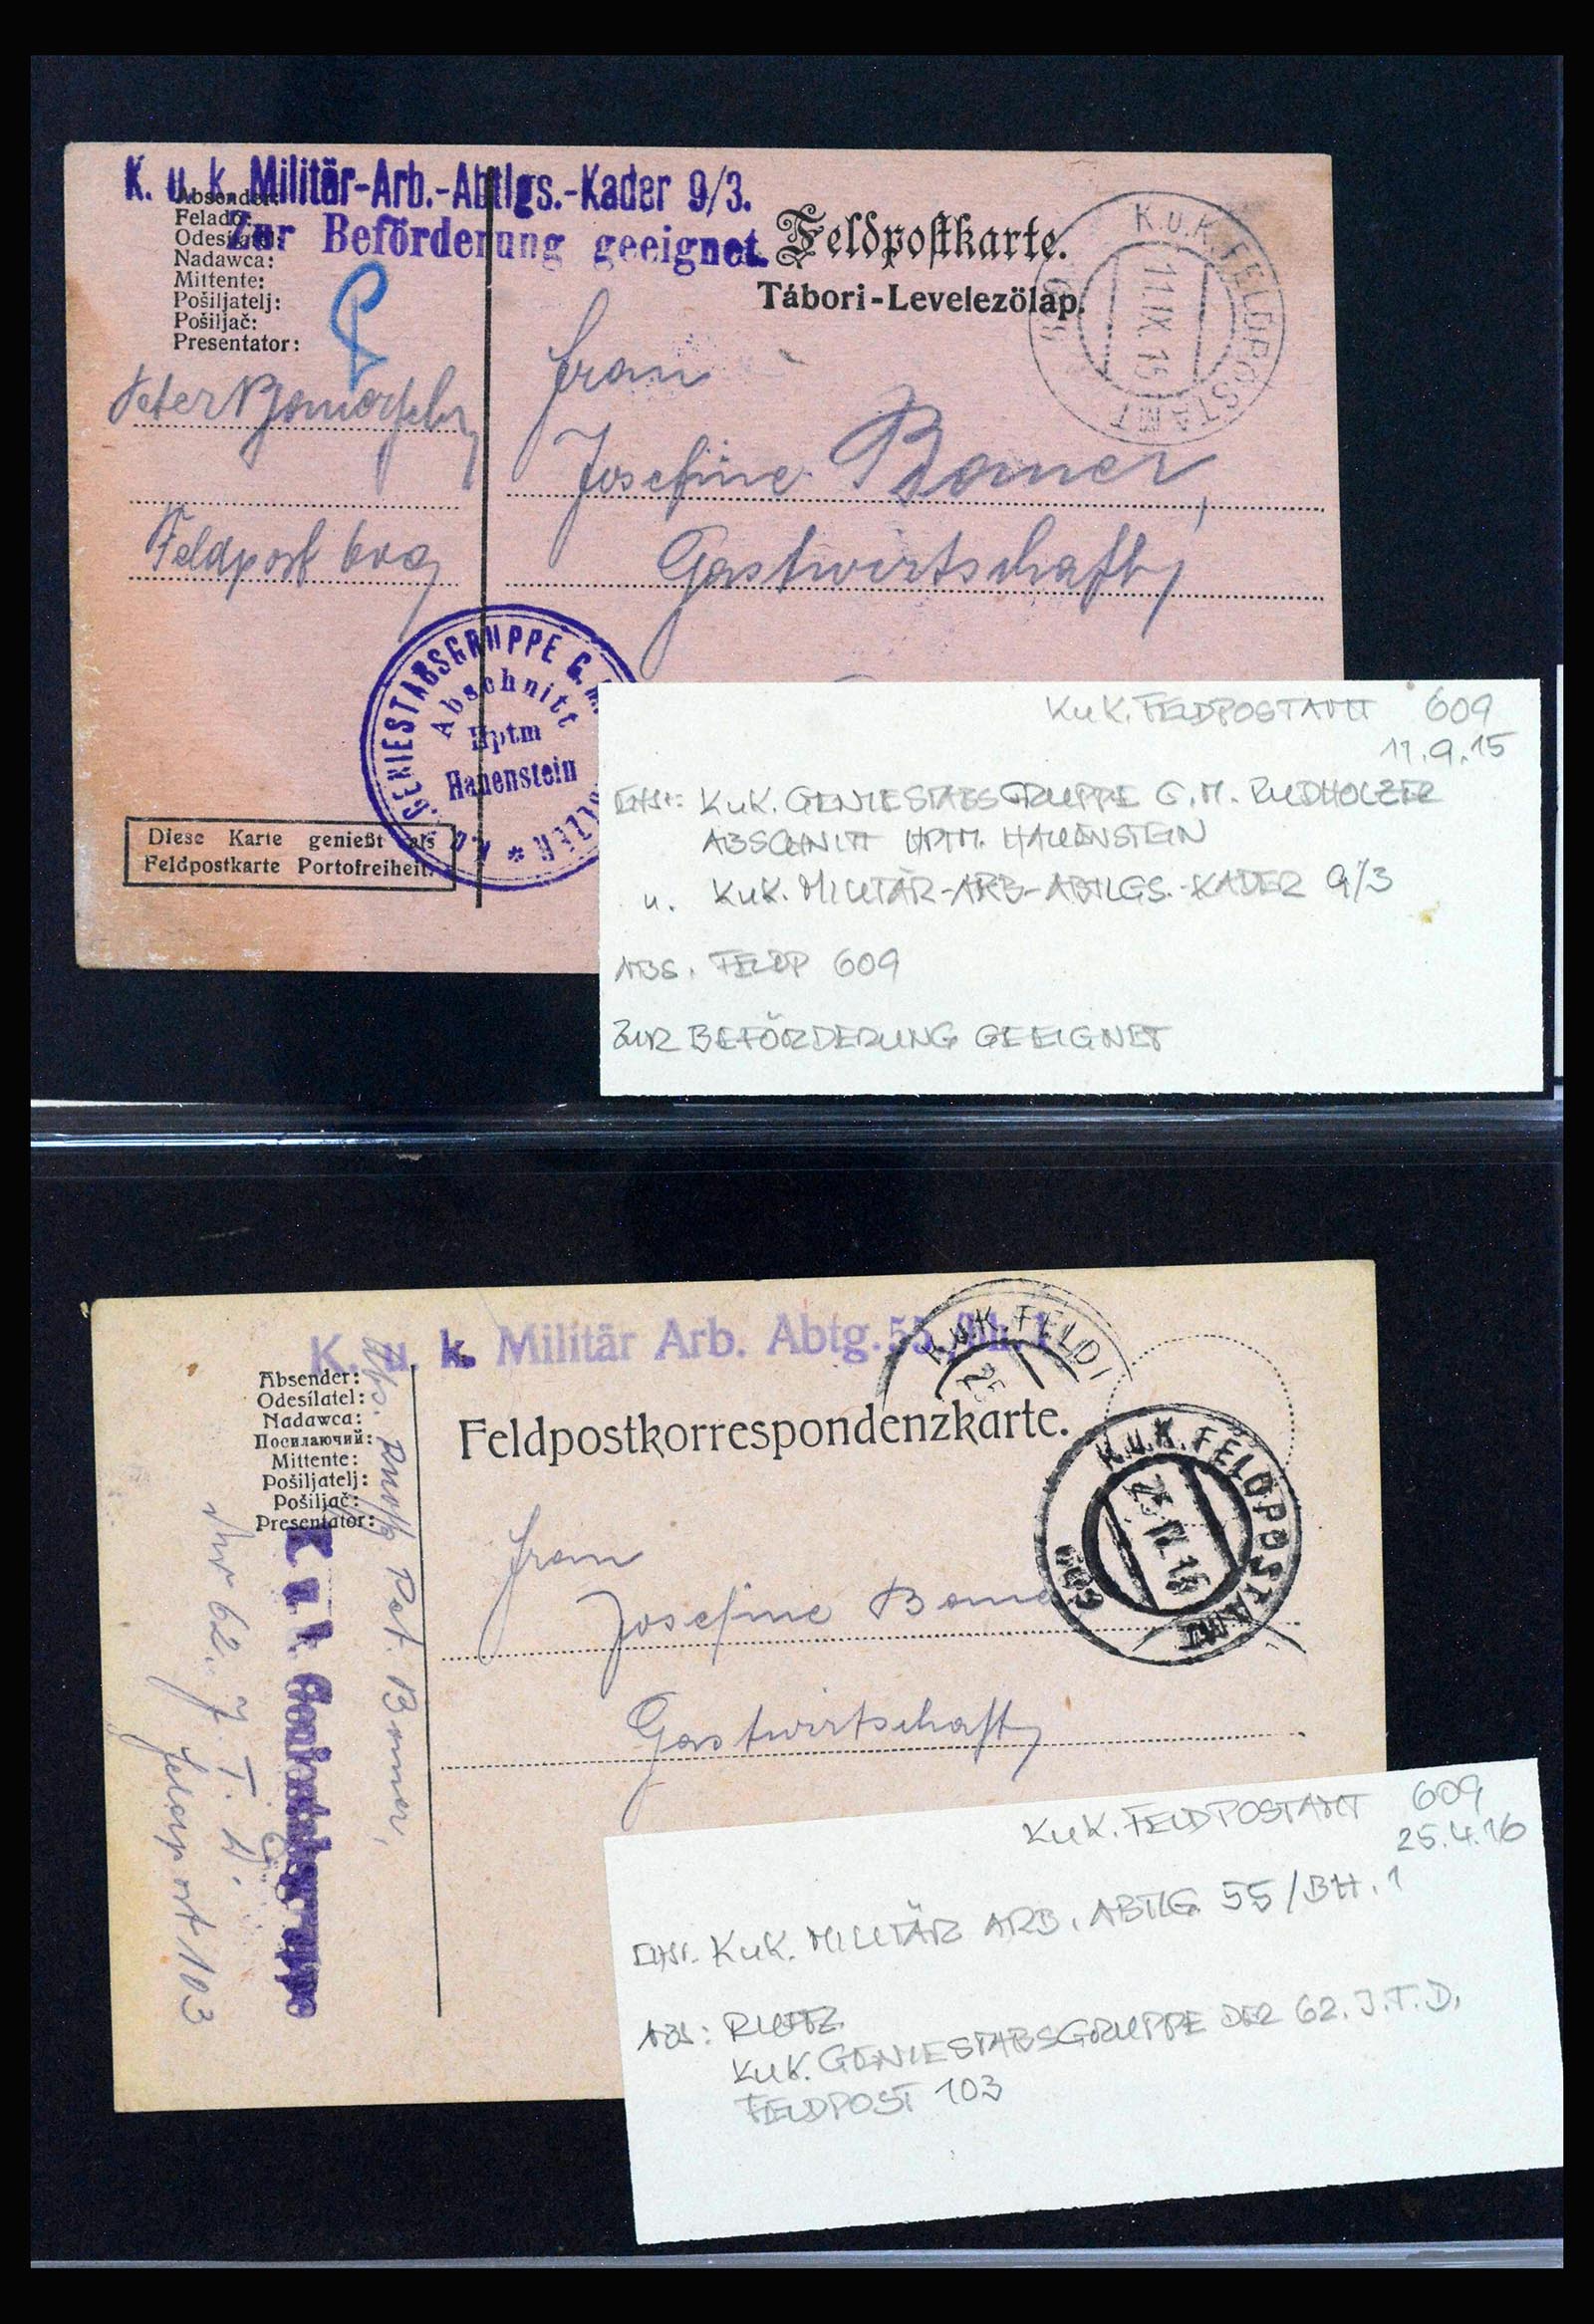 K. u. k. Militär-Arb.-Abtlgs.-Kader 9/3.
Zur Beförderung geeignet.
Absender:
Feladó:
Odesílatel:
Nadawca:
Mittente:
Pošiljatelj:
Pošiljač:
Presentator:
Feldpostkarte.
Tábori-Levelezölap.
K.u.K. FELDPOSTAMT
11.IX.15
Peter
Feldpost 609
Josefine
Gastwirtschaft
GENIESTABSGRUPPE G.M.
Abschnitt
Hptm
Hauenstein
Diese Karte genießt als
Feldpostkarte Portofreiheit.
KuK. FELDPOSTAMT 609
11.9.15
KuK. GENIESTABSGRUPPE G.M. RUDHOLZER
ABSCHNITT HPTM. HAUENSTEIN
u. KuK. MILITÄR-ARB-ABTLGS.-KADER 9/3
ABS. FELDP 609
ZUR BEFÖRDERUNG GEEIGNET
K. u. k. Militär Arb. Abtg. 55/Bh. 1
K.u.K. FELDP
25
Absender:
Odesílatel:
Nadawca:
Посилаючий:
Mittente:
Pošiljatelj:
Pošiljač:
Presentator:
Feldpostkorrespondenzkarte.
K.u.K. FELDPOSTAMT
25.IV.16
609
Josefine
Gastwirtschaft
K u k Geniestabsgruppe
der 62. J. T. D.
Feldpost 103
KuK. FELDPOSTAMT 609
25.4.16
KuK. MILITÄR ARB. ABTLG. 55/BH. 1
ABS: RUFFZ.
KuK. GENIESTABSGRUPPE DER 62. J.T.D.
FELDPOST 103